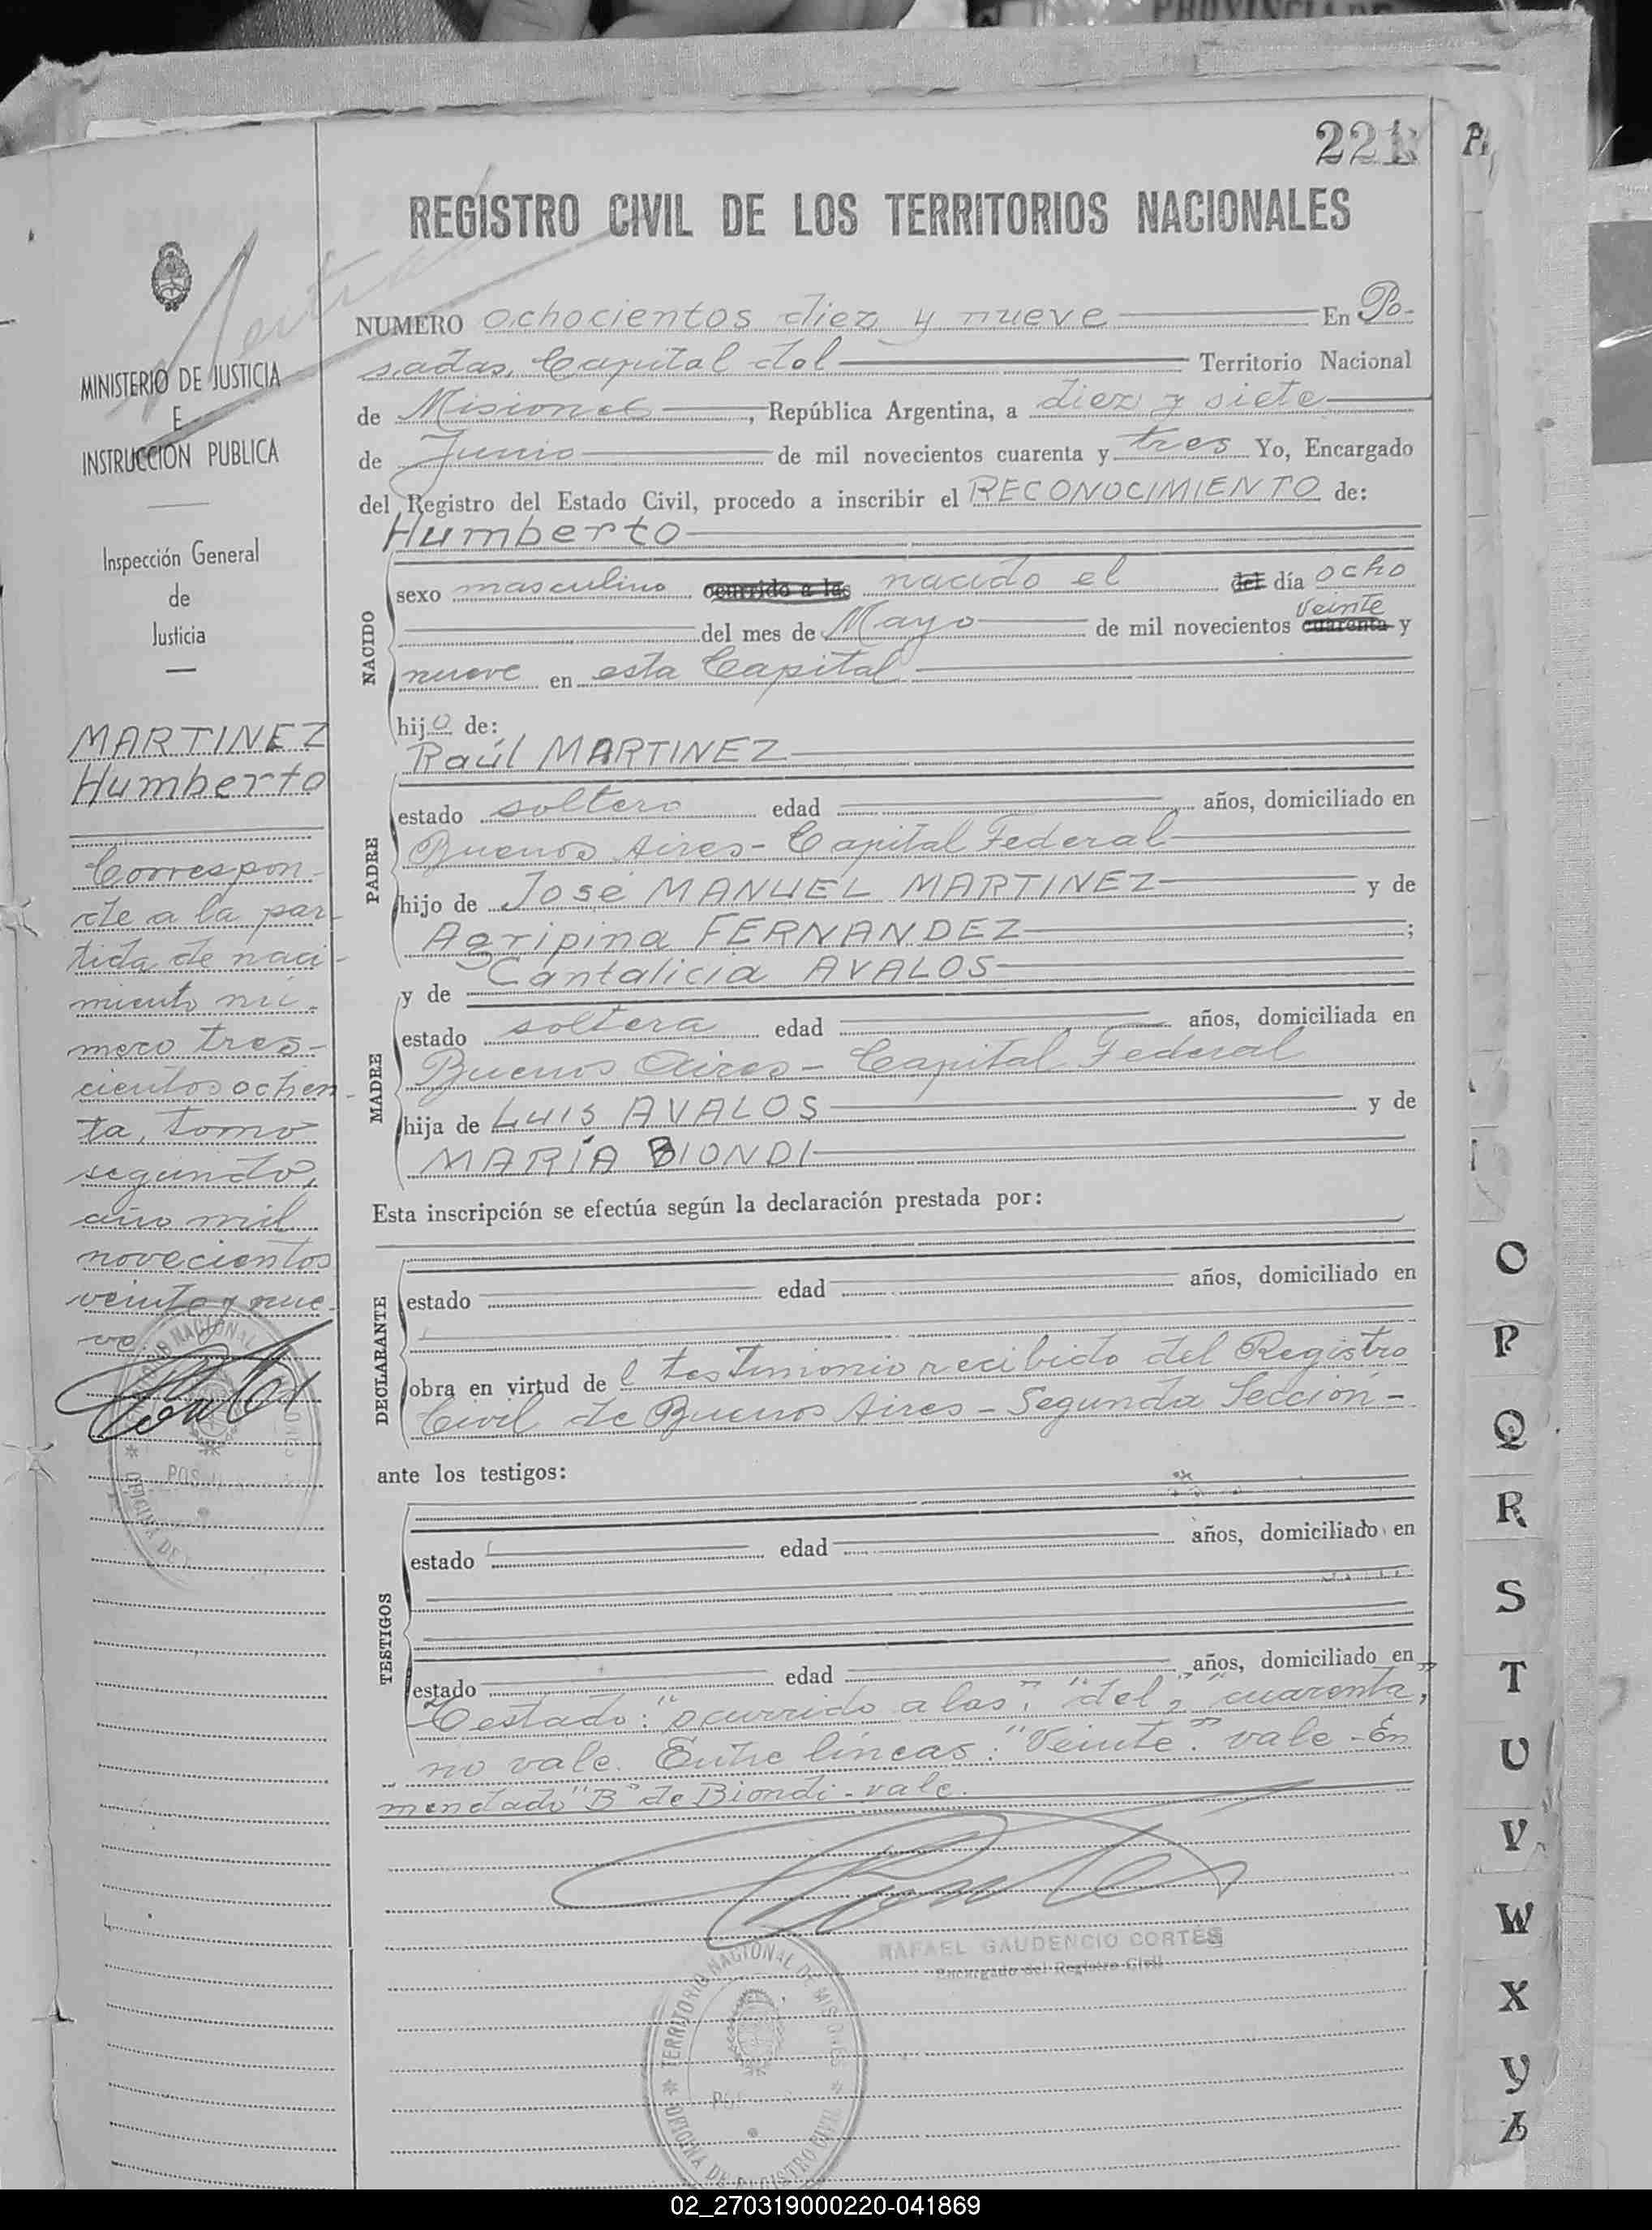 221
P
REGISTRO CIVIL DE LOS TERRITORIOS NACIONALES
MINISTERIO DE JUSTICIA
E
INSTRUCCION PUBLICA
Inspección General
de
Justicia
MARTINEZ
Humberto
Correspon-
de a la par-
tida de naci-
miento nú-
mero tres-
cientos ochen-
ta, tomo
segundo,
año mil
novecientos
veinte y nue-
ve
NUMERO ochocientos diez y nueve En Po-
sadas, Capital del Territorio Nacional
de Misiones, República Argentina, a diez y siete
de Junio de mil novecientos cuarenta y tres Yo, Encargado
del Registro del Estado Civil, procedo a inscribir el RECONOCIMIENTO de:
Humberto
NACIDO
sexo masculino ocurrido a las nacido el del día ocho
del mes de Mayo de mil novecientos cuarenta veinte y
nueve en esta Capital
hijo de:
Raúl MARTINEZ
PADRE
estado soltero edad años, domiciliado en
Buenos Aires - Capital Federal
hijo de José MANUEL MARTINEZ y de
Agripina FERNANDEZ ;
y de Cantalicia AVALOS
MADRE
estado soltera edad años, domiciliada en
Buenos Aires - Capital Federal
hija de LUIS AVALOS y de
MARÍA BIONDI
Esta inscripción se efectúa según la declaración prestada por:
DECLARANTE
estado edad años, domiciliado en
obra en virtud de l testimonio recibido del Registro
Civil de Buenos Aires - Segunda Sección -
ante los testigos:
TESTIGOS
estado edad años, domiciliado en
estado edad años, domiciliado en
Testado: "ocurrido a las", "del", "cuarenta",
no vale. Entre líneas: "Veinte". vale - En
mendado "B" de Biondi - vale.
RAFAEL GAUDENCIO CORTES
Encargado del Registro Civil
TERRITORIO NACIONAL DE MISIONES
OFICINA DE REGISTRO CIVIL
O
P
Q
R
S
T
U
V
W
X
Y
Z
02_270319000220-041869